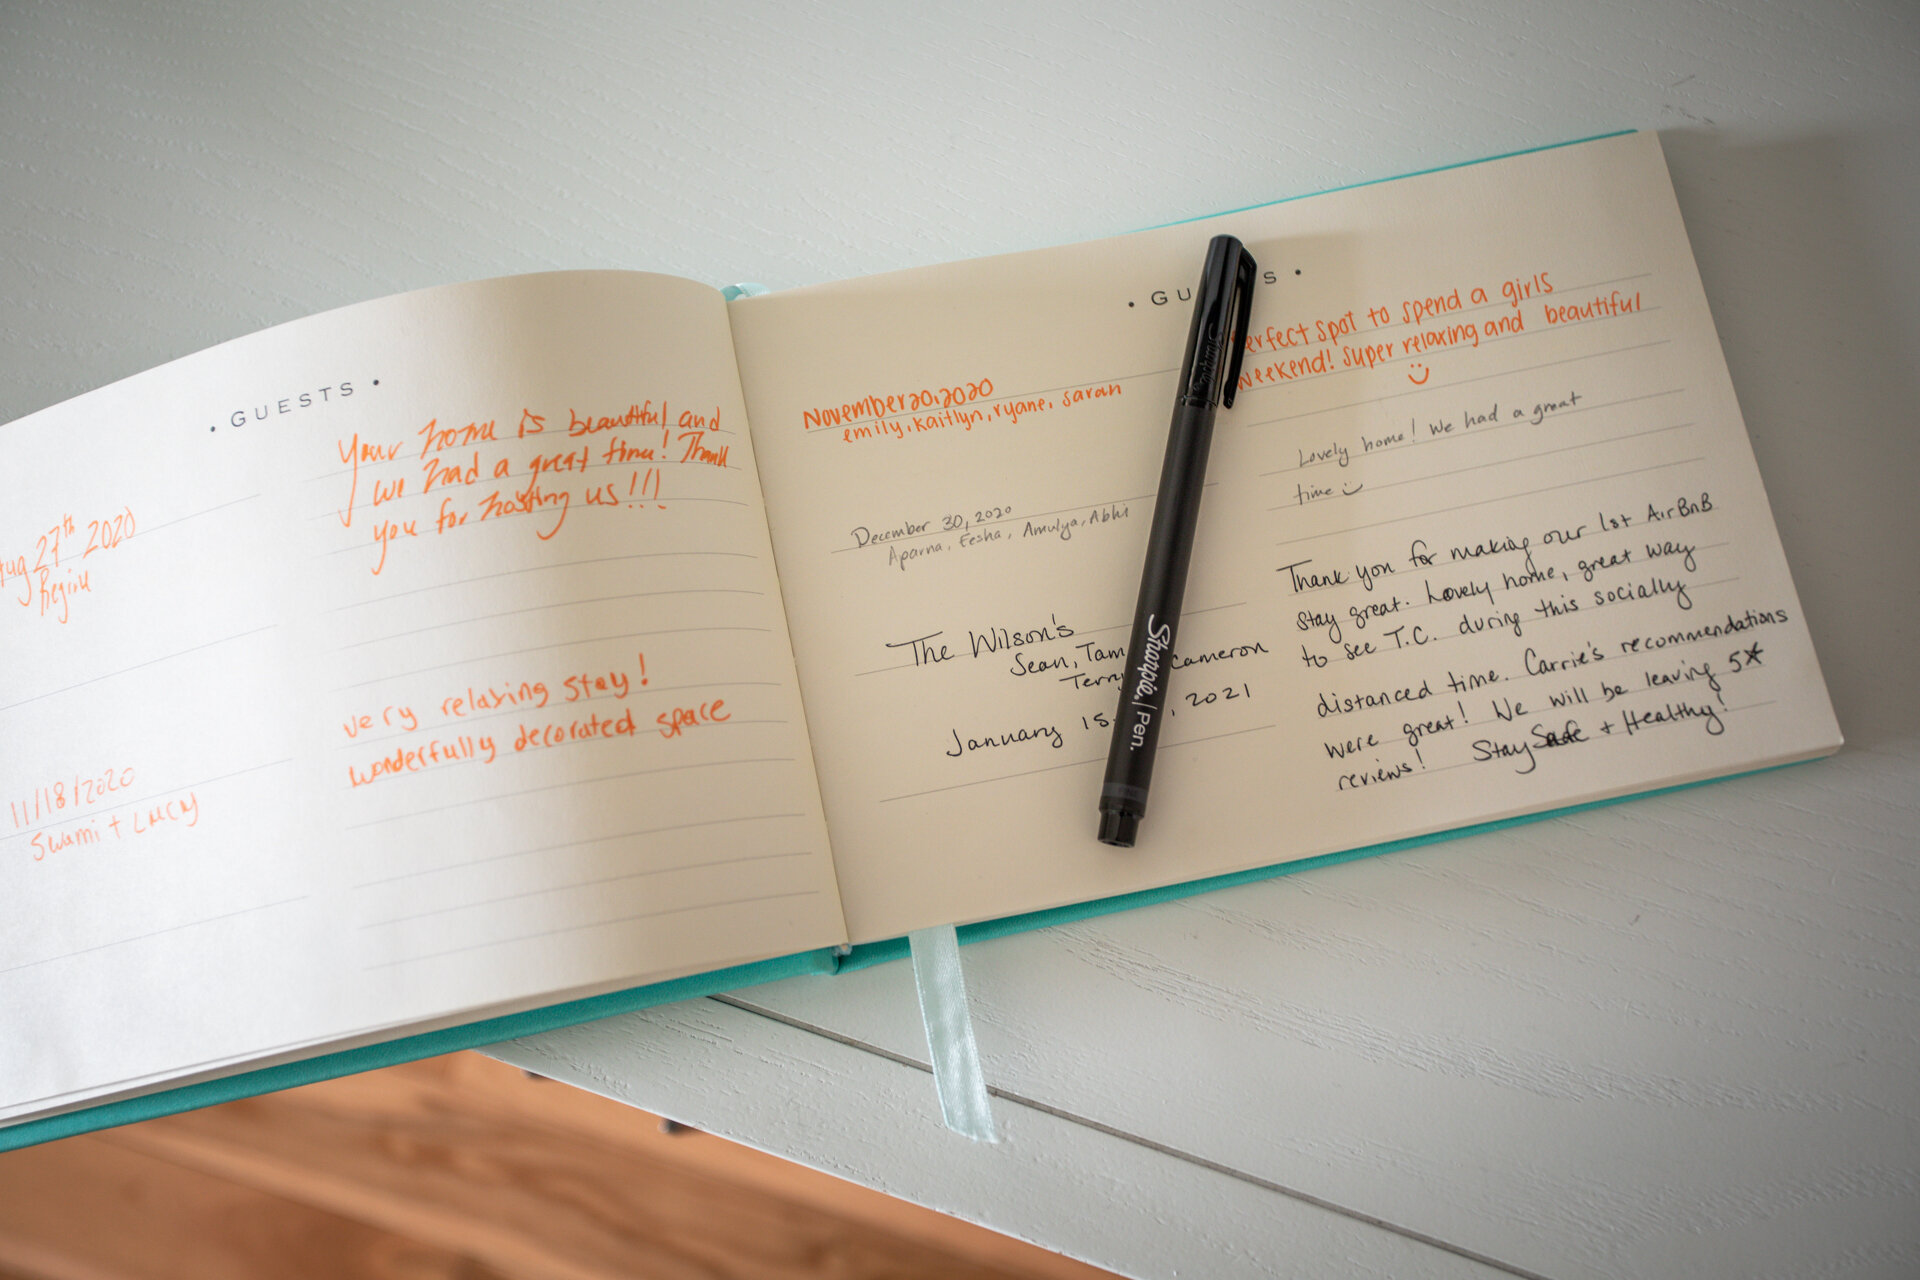 • GUESTS •
Aug 27th 2020
Regina
Your home is beautiful and
we had a great time! Thank
you for hosting us!!!
11/18/2020
Swami + Lucy
very relaxing stay!
wonderfully decorated space
• GU S •
November 20, 2020
emily, kaitlyn, ryane, sarah
erfect spot to spend a girls
weekend! super relaxing and beautiful
December 30, 2020
Aparna, Eesha, Amulya, Abhi
Lovely home! We had a great
time
The Wilson's
Sean, Tam Cameron
Terry
January 15 , 2021
Thank you for making our 1st AirBnB
stay great. Lovely home, great way
to see T.C. during this socially
distanced time. Carrie's recommendations
were great! We will be leaving 5★
reviews! Stay Safe + Healthy!
Sharpie. | Pen.